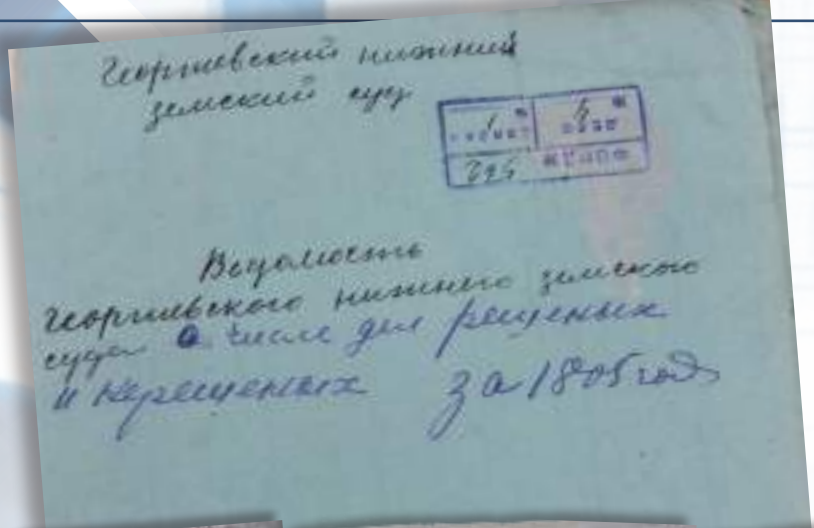 Георгиевский нижний
земский суд
Ведомость
Георгиевского нижнего земского
суда о числе дел решеных
и нерешеных за 1805 год